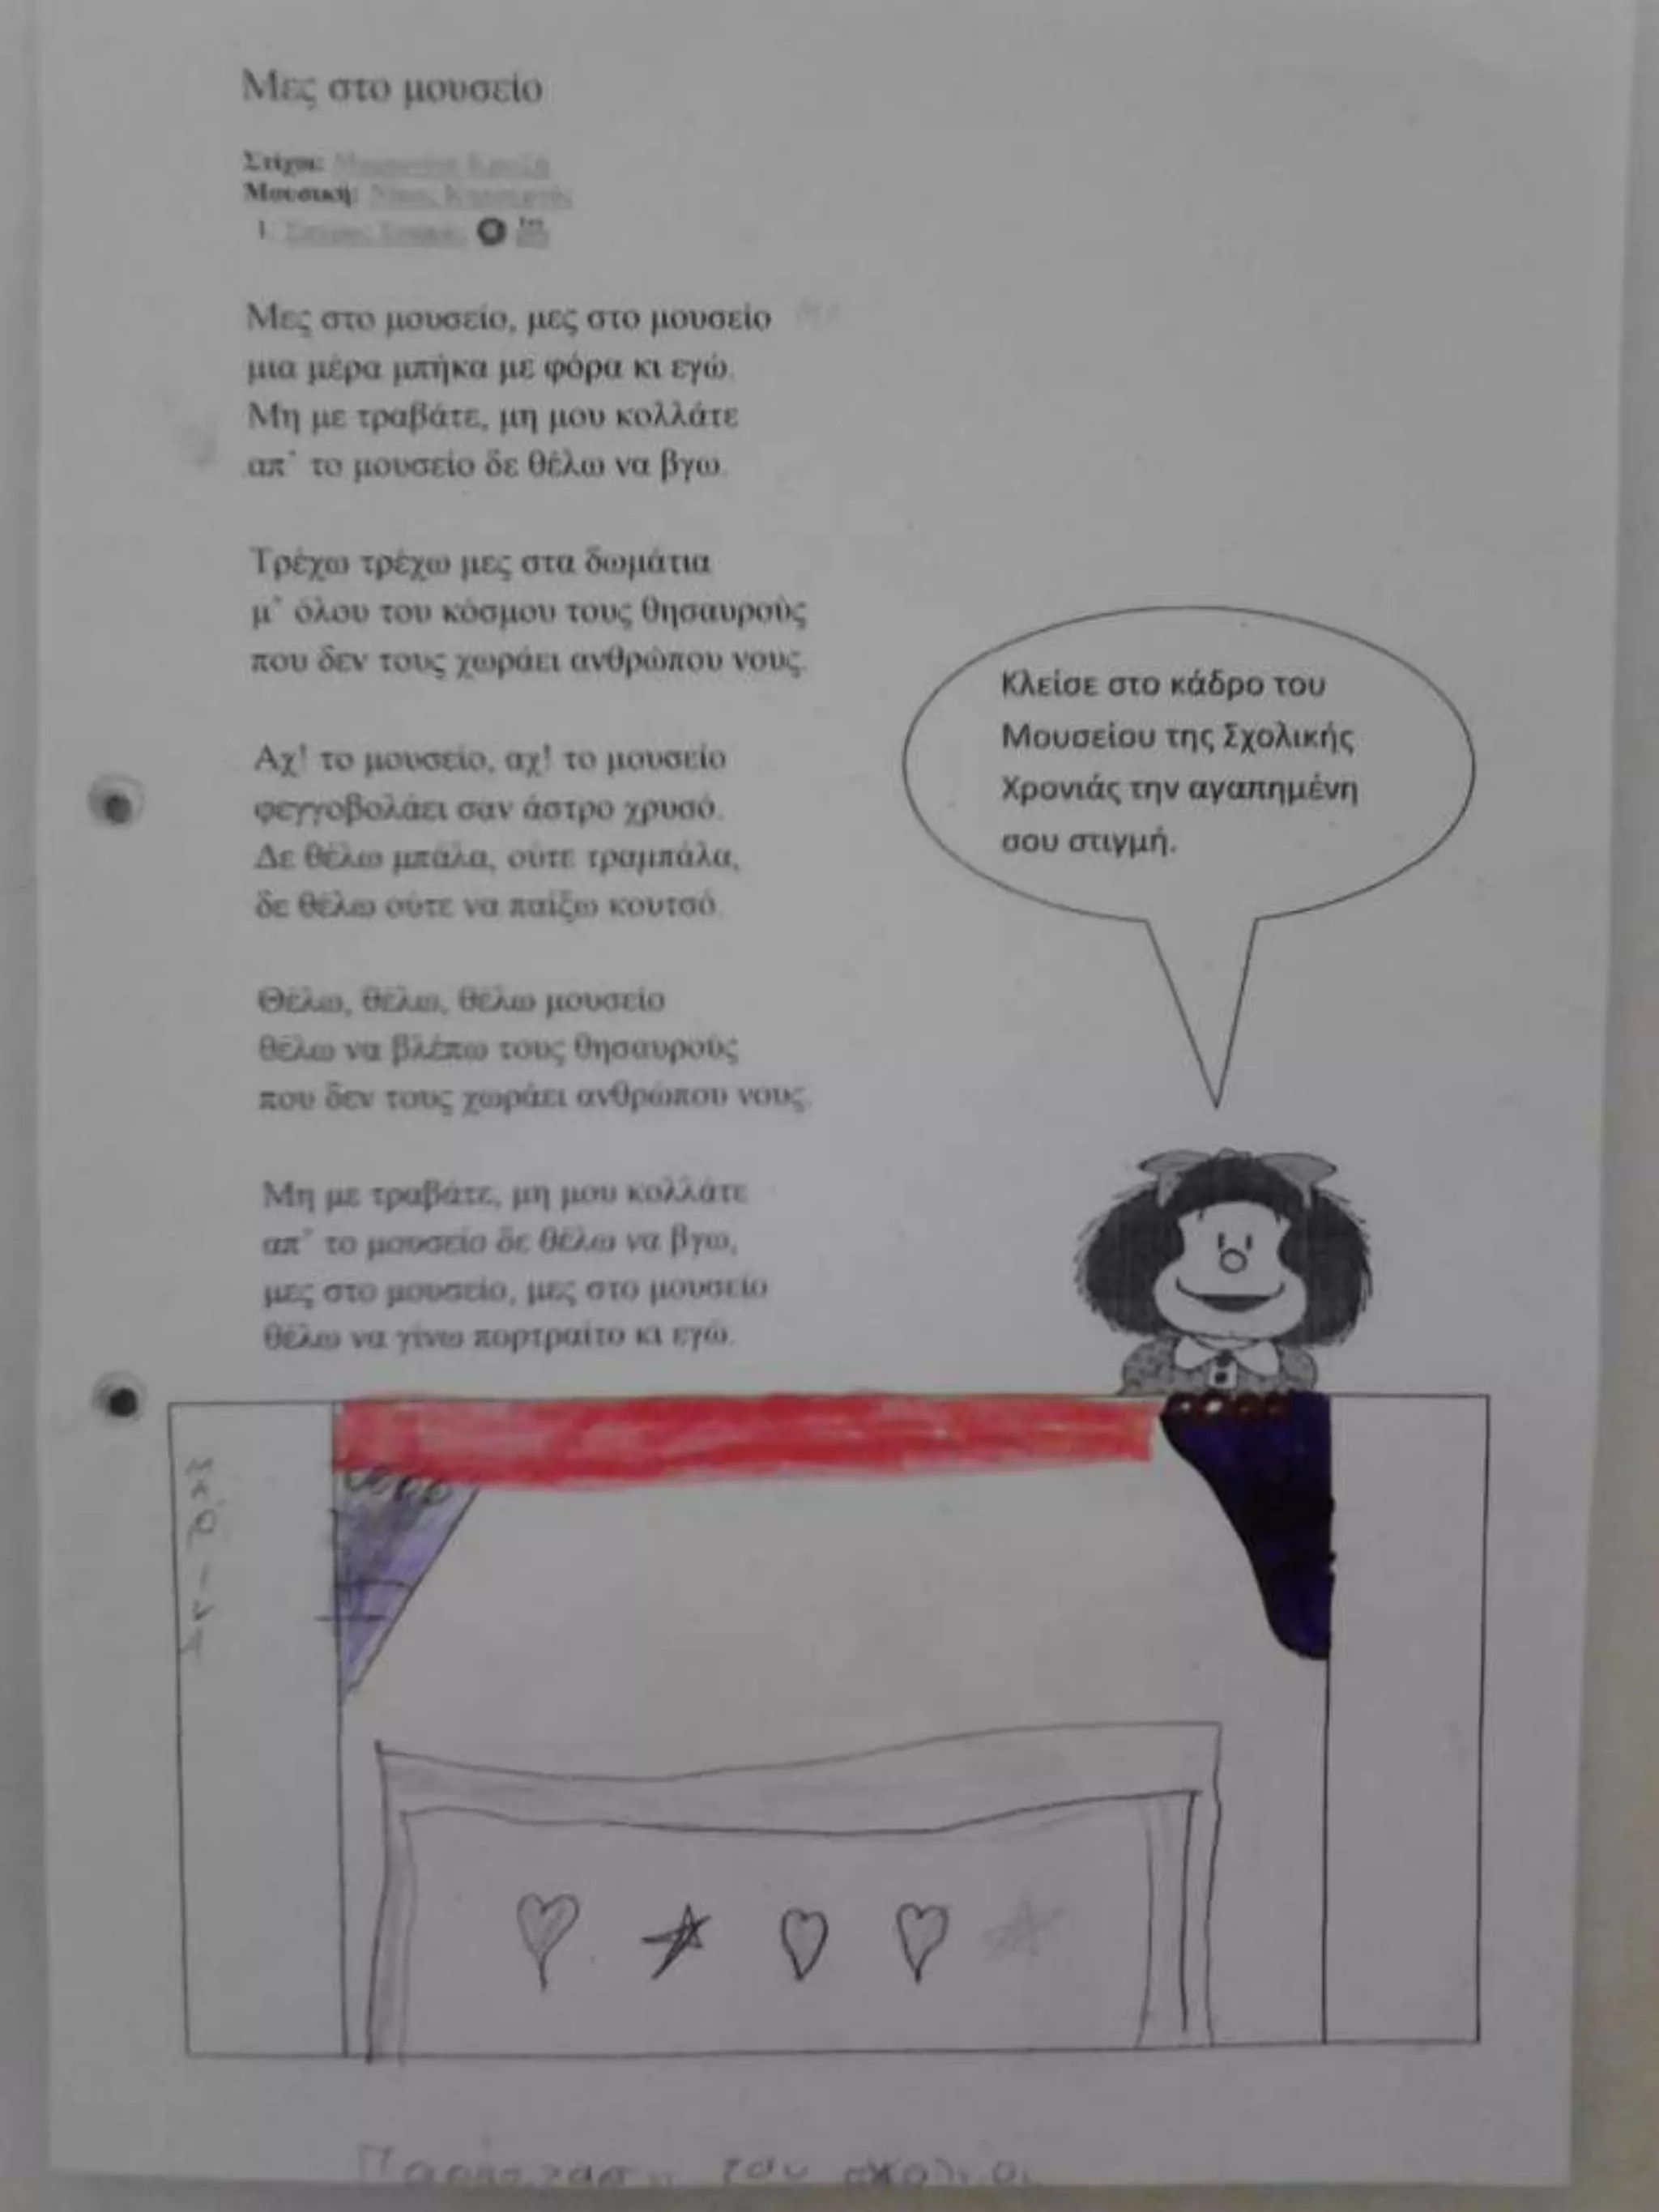 Μες στο μουσείο
Στίχοι:
Μουσική:
1.
Μες στο μουσείο, μες στο μουσείο
μια μέρα μπήκα με φόρα κι εγώ.
Μη με τραβάτε, μη μου κολλάτε
απ' το μουσείο δε θέλω να βγω.
Τρέχω τρέχω μες στα δωμάτια
μ' όλου του κόσμου τους θησαυρούς
που δεν τους χωράει ανθρώπου νους.
Αχ! το μουσείο, αχ! το μουσείο
φεγγοβολάει σαν άστρο χρυσό.
Δε θέλω μπάλα, ούτε τραμπάλα,
δε θέλω ούτε να παίξω κουτσό.
Θέλω, θέλω, θέλω μουσείο
θέλω να βλέπω τους θησαυρούς
που δεν τους χωράει ανθρώπου νους.
Μη με τραβάτε, μη μου κολλάτε
απ' το μουσείο δε θέλω να βγω,
μες στο μουσείο, μες στο μουσείο
θέλω να γίνω πορτραίτο κι εγώ.
Κλείσε στο κάδρο του
Μουσείου της Σχολικής
Χρονιάς την αγαπημένη
σου στιγμή.
του